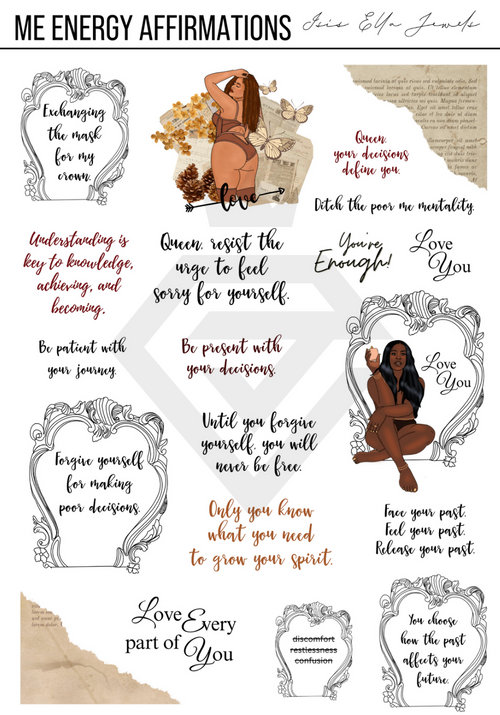 ME ENERGY AFFIRMATIONS
Isis Ella Jewels
Exchanging
the mask
for my
crown.
love
Queen,
your decisions
define you.
Ditch the poor me mentality.
Understanding is
key to knowledge,
achieving, and
becoming.
Queen, resist the
urge to feel
sorry for yourself.
You're
Enough!
Love
You
Be patient with
your journey.
Be present with
your decisions.
Love
You
Until you forgive
yourself, you will
never be free.
Forgive yourself
for making
poor decisions.
Only you know
what you need
to grow your spirit.
Face your past.
Feel your past.
Release your past.
Love Every
part of You
discomfort
restlessness
confusion
You choose
how the past
affects your
future.